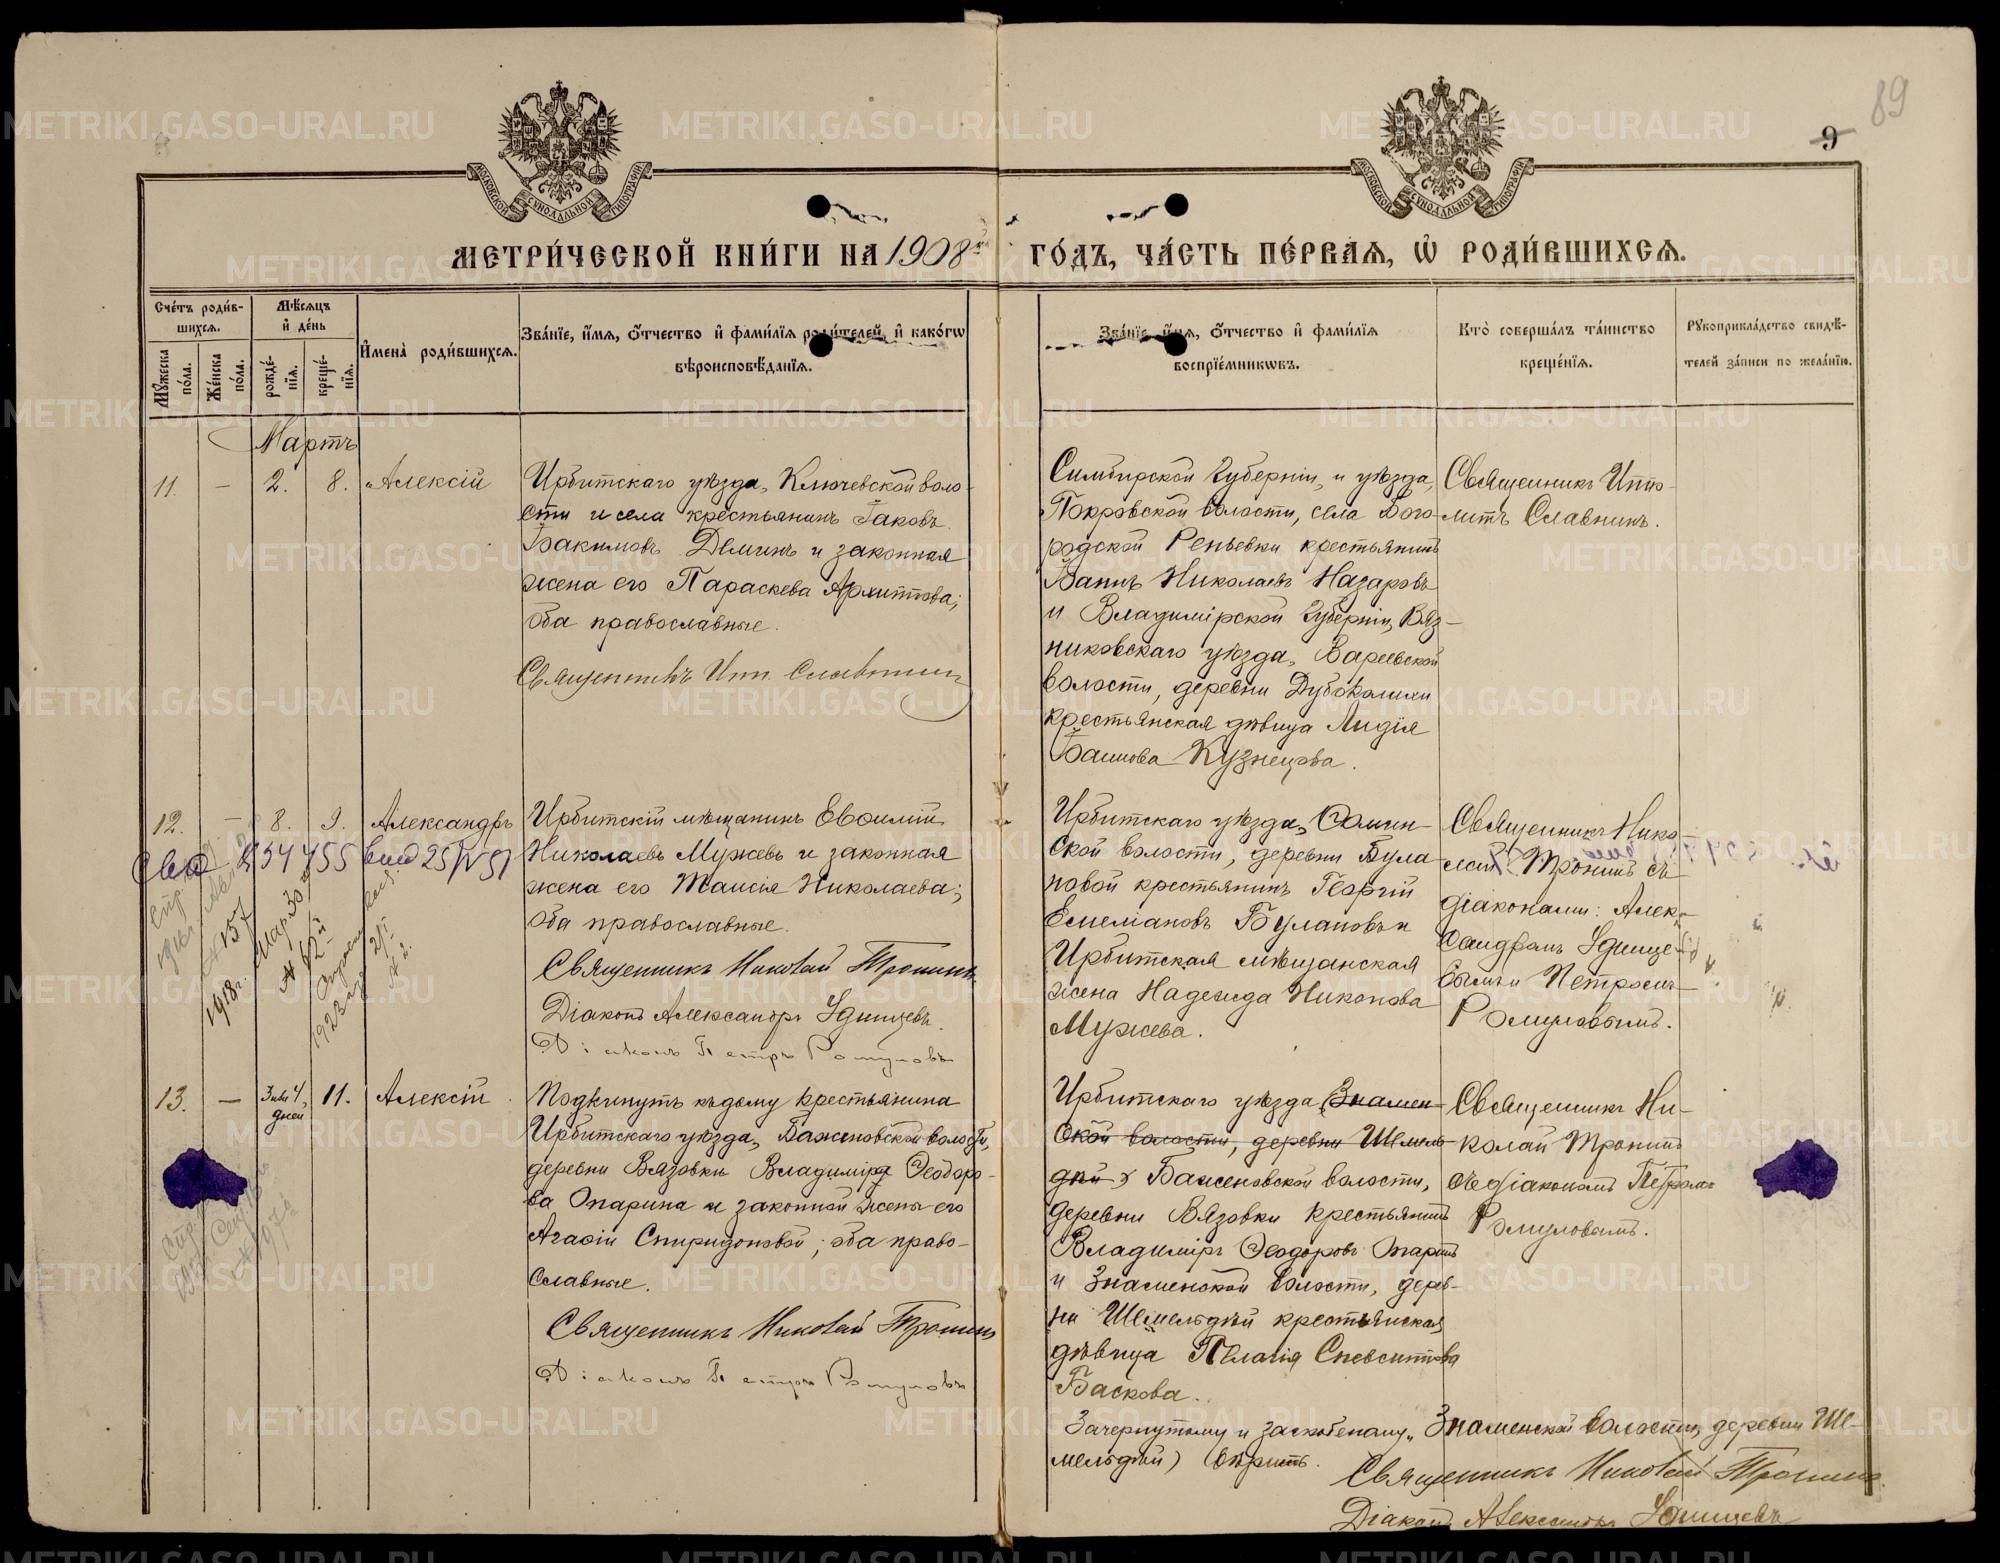 89
9
МОСКОВСКОЙ СѴНОДАЛЬНОЙ ТИПОГРАФІИ
МОСКОВСКОЙ СѴНОДАЛЬНОЙ ТИПОГРАФІИ
МЕТРИ́ЧЕСКОЙ КНИ́ГИ НА 1908й ГО́ДЪ, ЧА́СТЬ ПЕ́РВАЯ, Ѡ҆ РОДИ́ВШИХСЯ.
Сче́тъ роди́в-
шихся.
Мꙋ́жеска по́ла.
Же́нска по́ла.
Мѣ́сяцъ
и҆ де́нь
рожде́-
нїя.
креще́-
нїя.
И҆мена̀ роди́вшихся.
Зва́нїе, и҆́мя, ѻ҆́тчество и҆ фами́лїя роди́телей, и҆ како́гѡ
вѣроисповѣ́данїя.
Зва́нїе, и҆́мя, ѻ҆́тчество и҆ фами́лїя
воспрїе́мникѡвъ.
Кто̀ соверша́лъ та́инство
креще́нїя.
Рꙋкоприкла́дство свидѣ́-
телей за́писи по жела́нїю.
Мартъ
11. — 2. 8. Алексій
Ирбитскаго уѣзда, Ключевской воло-
сти и села крестьянинъ Іаковъ
Іакимовъ Деминъ и законная
жена его Параскева Архиппова;
оба православные.
Священникъ Ипп. Славнинъ
Симбирской губерніи, и уѣзда,
Покровской волости, села Бого-
родской Репьевки крестьянинъ
Іаннъ Николаевъ Назаровъ
и Владимірской губерніи, Вяз-
никовскаго уѣзда, Варевской
волости, деревни
крестьянская дѣвица Лидія
Іаннова Кузнецова.
Священникъ Иппо-
литъ Славнинъ.
12. — 8. 9. Александръ
Ирбитскій мѣщанинъ Евѳимій
Николаевъ Мужевъ и законная
жена его Таисія Николаева;
оба православные.
Священникъ Николай Тронинъ
Діаконъ Александръ Удинцевъ.
Діаконъ Петръ Ромуловъ
Ирбитскаго уѣзда,
ской волости, деревни Була-
новой крестьянинъ Георгій
Емеліановъ Булановъ и
Ирбитская мѣщанская
жена Надежда Никонова
Мужева.
Священникъ Нико-
лай Тронинъ съ
діаконами: Алек-
сандромъ Удинце-
вымъ и Петромъ
Ромуловымъ.
1918г.
13. — 3 или 4 дней 11. Алексій
Подкинутъ къ дому крестьянина
Ирбитскаго уѣзда, Баженовской волости,
деревни Вязовки Владиміра Ѳеодоро-
ва Опарина и законной жены его
Агафіи Спиридоновой; оба право-
славные.
Священникъ Николай Тронинъ
Діаконъ Петръ Ромуловъ
Ирбитскаго уѣзда (Знамен-
ской волости, деревни Шмель-
дѣй) Баженовской волости,
деревни Вязовки крестьянинъ
Владиміръ Ѳеодоровъ Опаринъ
и Знаменской волости, дерев-
ни Шемельдѣй крестьянская
дѣвица Пелагія
Баскова.
Священникъ Ни-
колай Тронинъ
съ діакономъ Петромъ
Ромуловымъ.
Зачеркнутому и заскобленому „Знаменской волости, деревни Ше-
мельдѣй) вѣрить.
Священникъ Николай Тронинъ
Діаконъ Александръ Удинцевъ